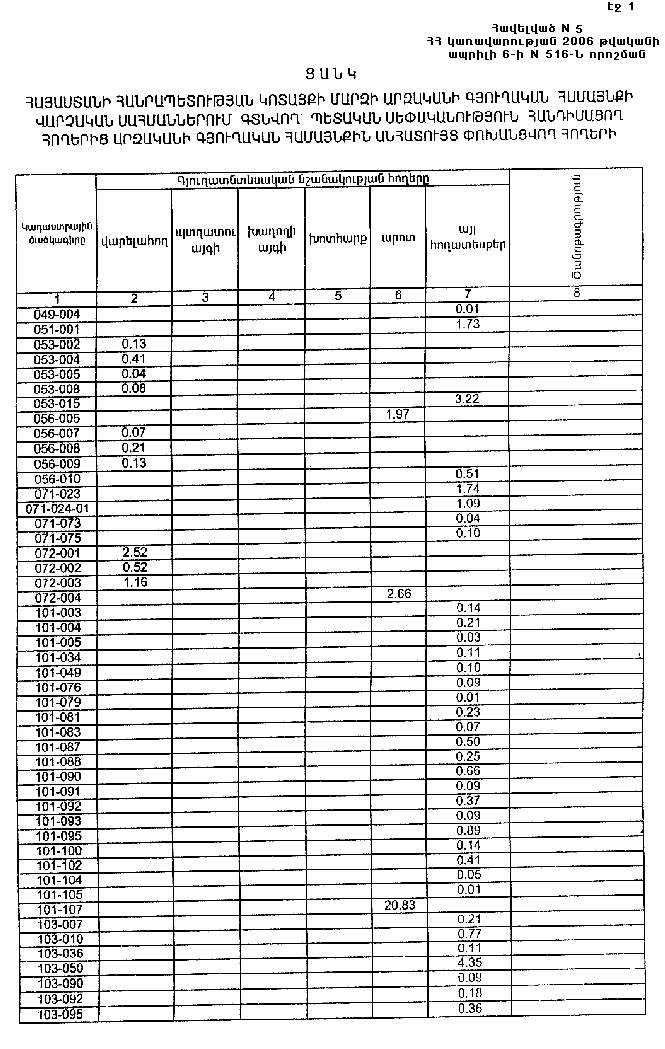 Էջ 1
Հավելված N 5
ՀՀ կառավարության 2006 թվականի
ապրիլի 6-ի N 516-Ն որոշման
Ց Ա Ն Կ
ՀԱՅԱՍՏԱՆԻ ՀԱՆՐԱՊԵՏՈՒԹՅԱՆ ԿՈՏԱՅՔԻ ՄԱՐԶԻ ԱՐԶԱԿԱՆԻ ԳՅՈՒՂԱԿԱՆ ՀԱՄԱՅՆՔԻ
ՎԱՐՉԱԿԱՆ ՍԱՀՄԱՆՆԵՐՈՒՄ ԳՏՆՎՈՂ ՊԵՏԱԿԱՆ ՍԵՓԱԿԱՆՈՒԹՅՈՒՆ ՀԱՆԴԻՍԱՑՈՂ
ՀՈՂԵՐԻՑ ԱՐԶԱԿԱՆԻ ԳՅՈՒՂԱԿԱՆ ՀԱՄԱՅՆՔԻՆ ԱՆՀԱՏՈՒՅՑ ՓՈԽԱՆՑՎՈՂ ՀՈՂԵՐԻ
Գյուղատնտեսական նշանակության հողերը
Կադաստրային ծածկագիրը վարելահող պտղատու այգի խաղողի այգի խոտհարք արոտ այլ հողատեսքեր Ծանոթագրություն
1 2 3 4 5 6 7 8
049-004 0.01
051-001 1.73
053-002 0.13
053-004 0.41
053-005 0.04
053-008 0.08
053-015 3.22
056-005 1.97
056-007 0.07
056-008 0.21
056-009 0.13
056-010 0.51
071-023 1.74
071-024-01 1.09
071-073 0.04
071-075 0.10
072-001 2.52
072-002 0.52
072-003 1.16
072-004 2.66
101-003 0.14
101-004 0.21
101-005 0.03
101-034 0.11
101-049 0.10
101-076 0.09
101-079 0.01
101-081 0.23
101-083 0.07
101-087 0.50
101-088 0.25
101-090 0.66
101-091 0.09
101-092 0.37
101-093 0.09
101-095 0.89
101-100 0.14
101-102 0.41
101-104 0.05
101-105 0.01
101-107 20.83
103-007 0.21
103-010 0.77
103-036 0.11
103-050 4.35
103-090 0.09
103-092 0.18
103-095 0.36